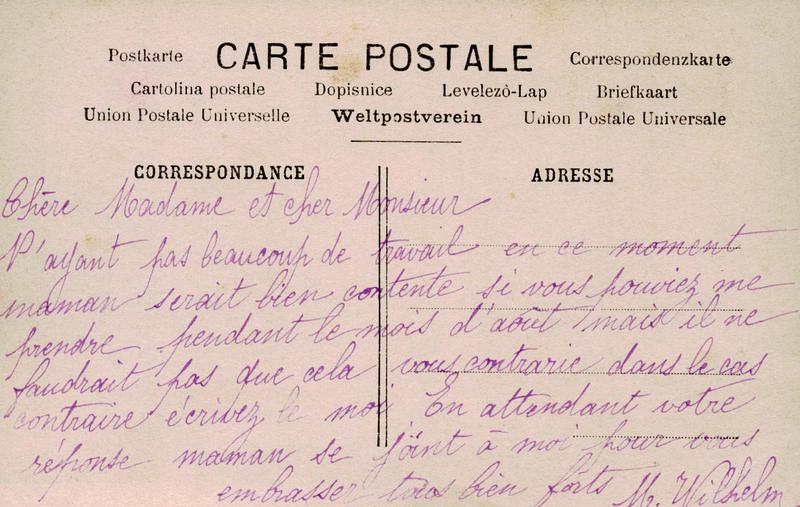 Postkarte CARTE POSTALE Correspondenzkarte
Cartolina postale Dopisnice Levelezò-Lap Briefkaart
Union Postale Universelle Weltpostverein Union Postale Universale
CORRESPONDANCE ADRESSE
Chère Madame et cher Monsieur
N'ayant pas beaucoup de travail en ce moment
maman serait bien contente si vous pouviez me
prendre pendant le mois d'août mais il ne
faudrait pas que cela vous contrarie dans le cas
contraire écrivez le moi En attendant votre
réponse maman se joint à moi pour vous
embrasser tous bien forts M. Wilhelm